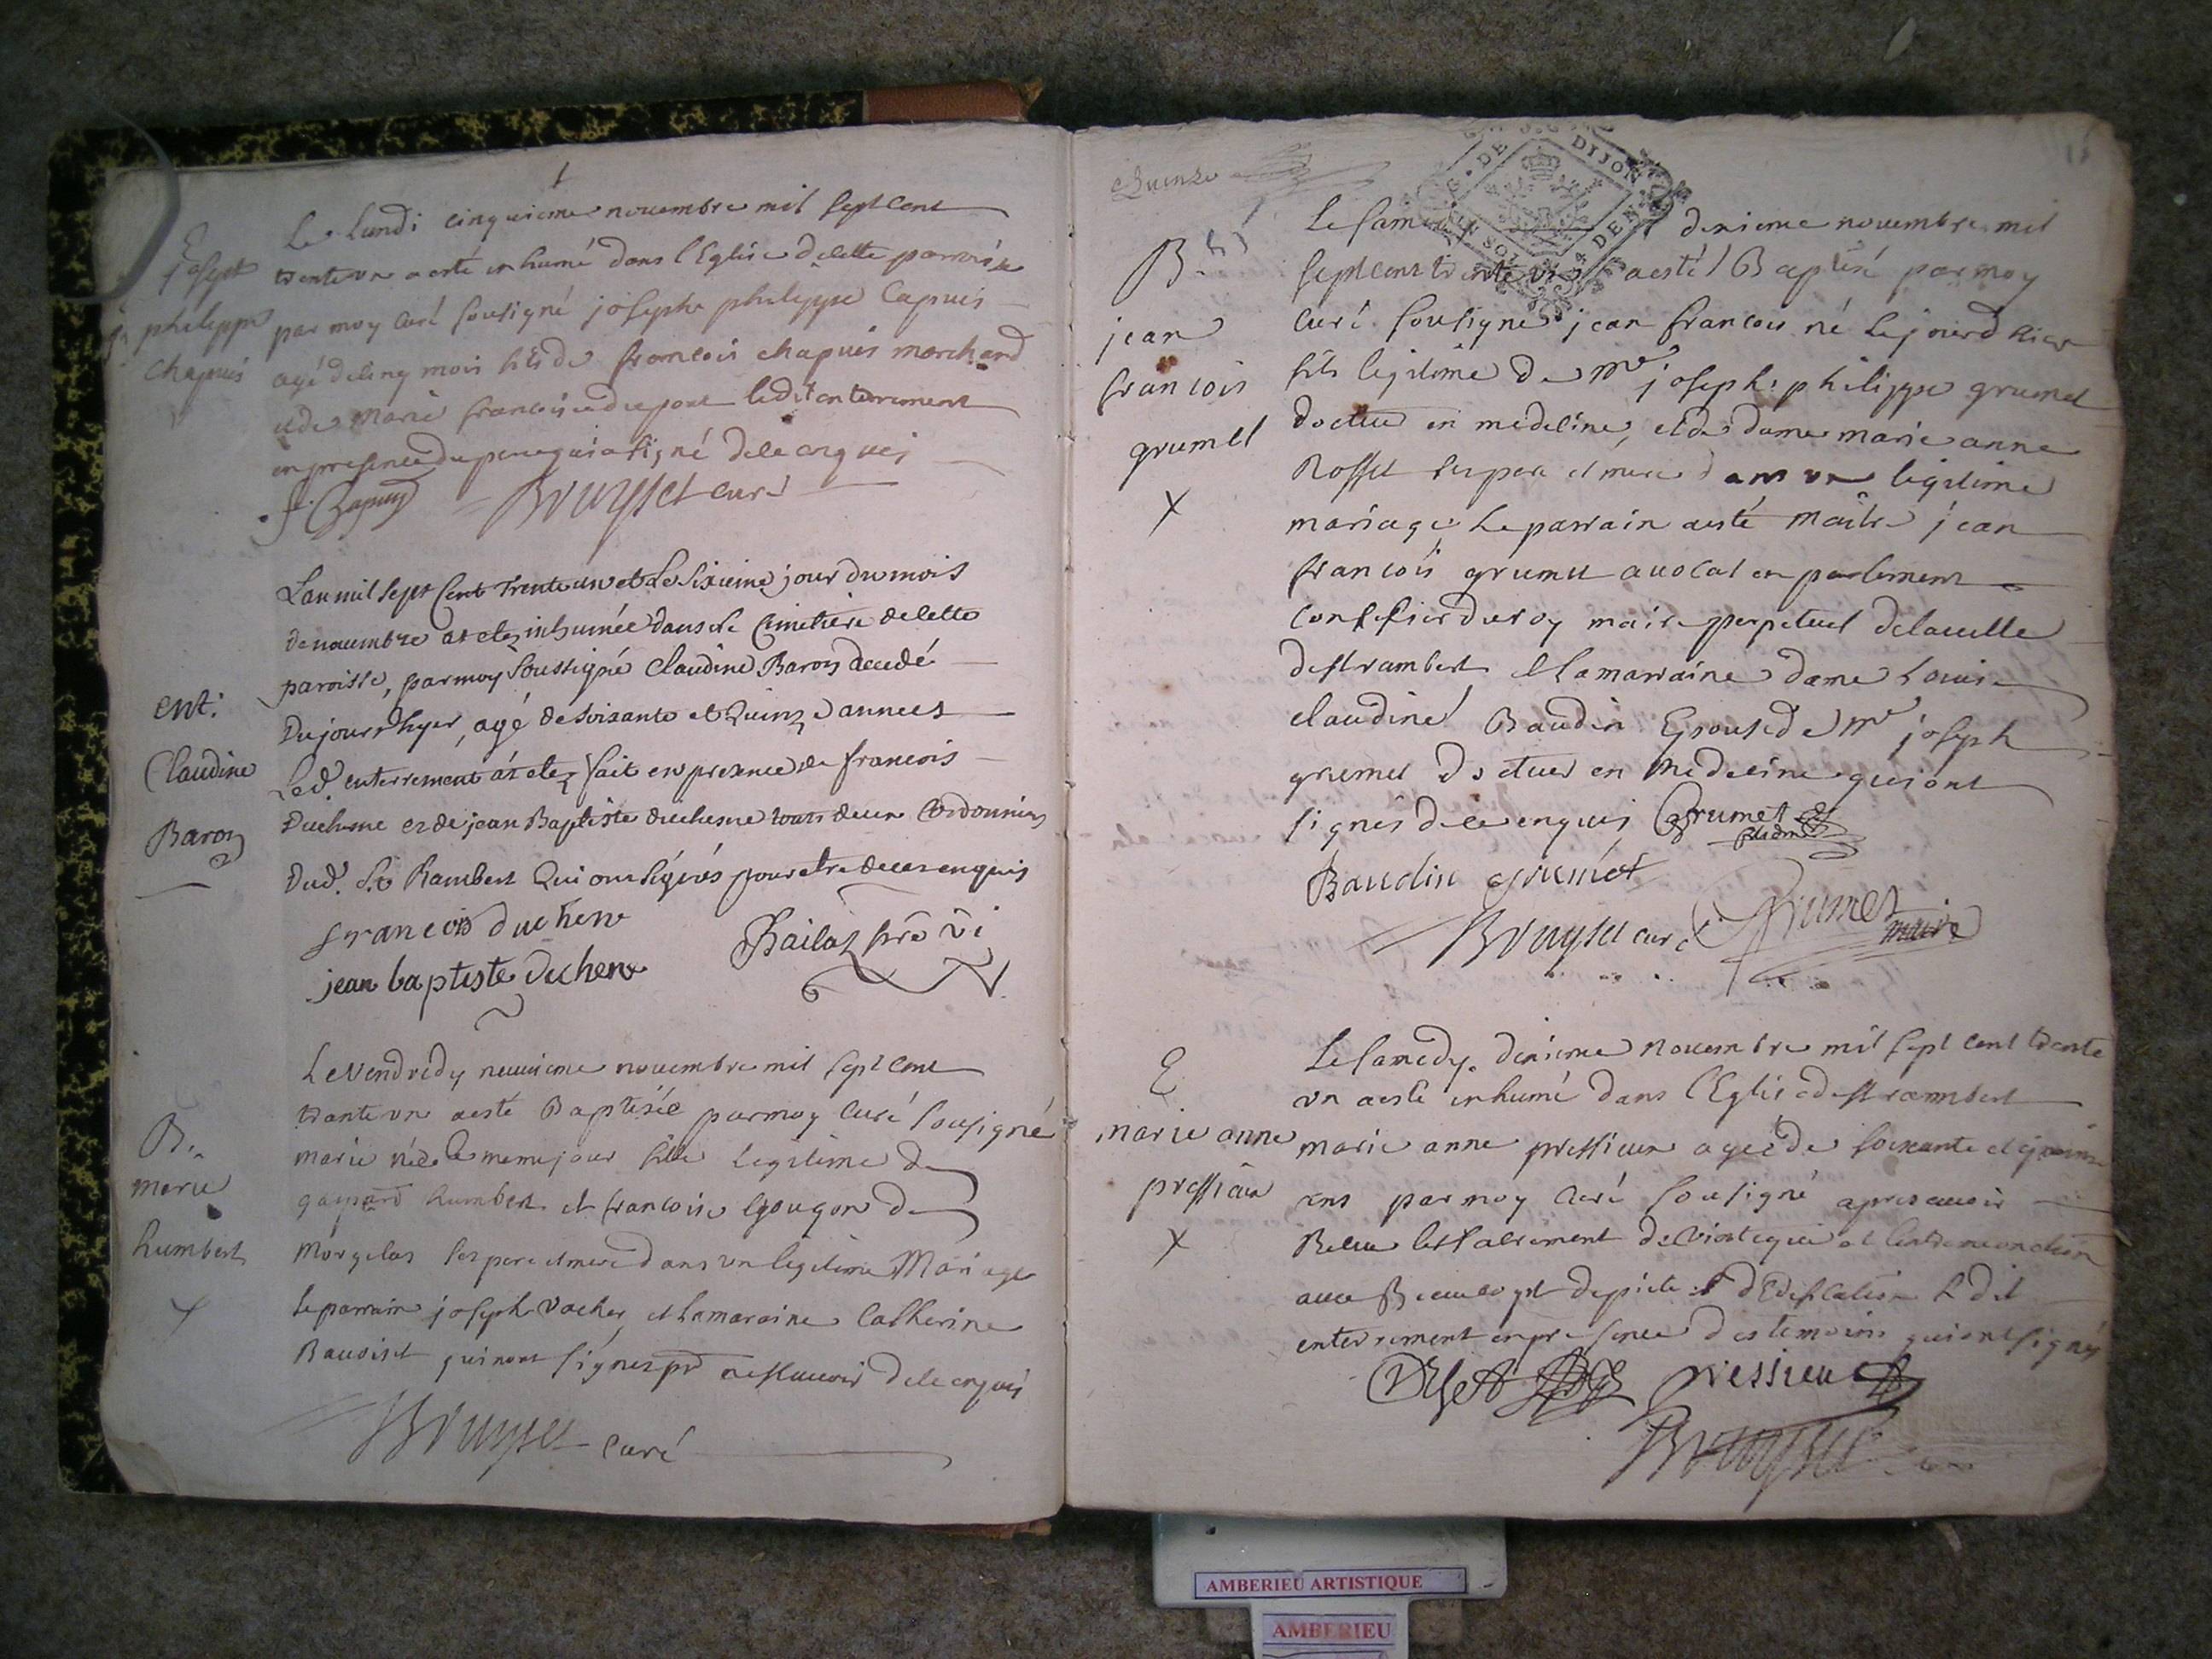 E
joseph
philippe
Chapuis
Le Lundi cinquieme novembre mil sept cent
trente un a esté inhumé dans l'Eglise de cette paroisse
par moy curé sousigné joseph philippe Capuis
agé de cinq mois fils de francois chapuis marchand
et de Marie francoise dupont ledit enterrement
en presence du pere qui a signé de ce enquis
Bruyset curé
ent.
Claudine
Baron
L'an mil sept Cent Trente un et Le Sixieme jour du mois
de novembre at eté inhumée dans Le Cimetiere de cette
paroisse, par moy Soussigné Claudine Baron decedé
du jour d'hyer, agé de Soixante et Quinze années
Led. enterrement at eté fait en presence de francois
Duchesne et de jean Baptiste duchesne tous deux Cordonniers
dud. St Rambert Qui ont signés pour etre de ce enquis
francois duchene
jean baptiste duchene
B.
marie
humbert
X
Le Vendredy neuvieme novembre mil sept cent
trante un a esté Baptisée par moy Curé Sousigné
marie née le meme jour fille Legitime de
gaspard humbert et francoise gougon de
Morgelas ses pere et mere dans un legitime Mariage
Le parrain joseph Vacher et la maraine Catherine
qui n'ont signés pr ne scavoir de ce enquis
Bruyset curé
Quinze
G. DE DIJON
B.
jean
francois
grumet
X
Le samedi dixieme novembre mil
sept cent trente un a esté Baptisé par moy
curé sousigné jean francois né le jour d'hier
fils legitime de Mre joseph philippe grumet
docteur en medecine, et de dame marie anne
Rosset ses pere et mere dans un legitime
mariage Le parrain a esté Maitre jean
francois grumet avocat en parlement
conseiller du roy maire perpetuel de la ville
de st rambert et la marraine dame Louise
claudine Baudin Epouse de Mre joseph
grumet docteur en Medecine qui ont
signés de ce enquis Grumet
Baudin grumet
Bruyset curé Grumet
maire
E
marie anne
pressieux
X
Le samedy dixieme novembre mil sept cent trente
un a esté inhumé dans l'Eglise de st rambert
marie anne pressieux agée de soixante et quinze
ans par moy Curé sousigné apres avoir
Receu les sacrement de viatique et l'extreme onction
avec Beaucoup de pieté et d'Edification Ledit
enterrement en presence des temoins qui ont signés
pressieu
Bruyset
AMBERIEU ARTISTIQUE
AMBERIEU